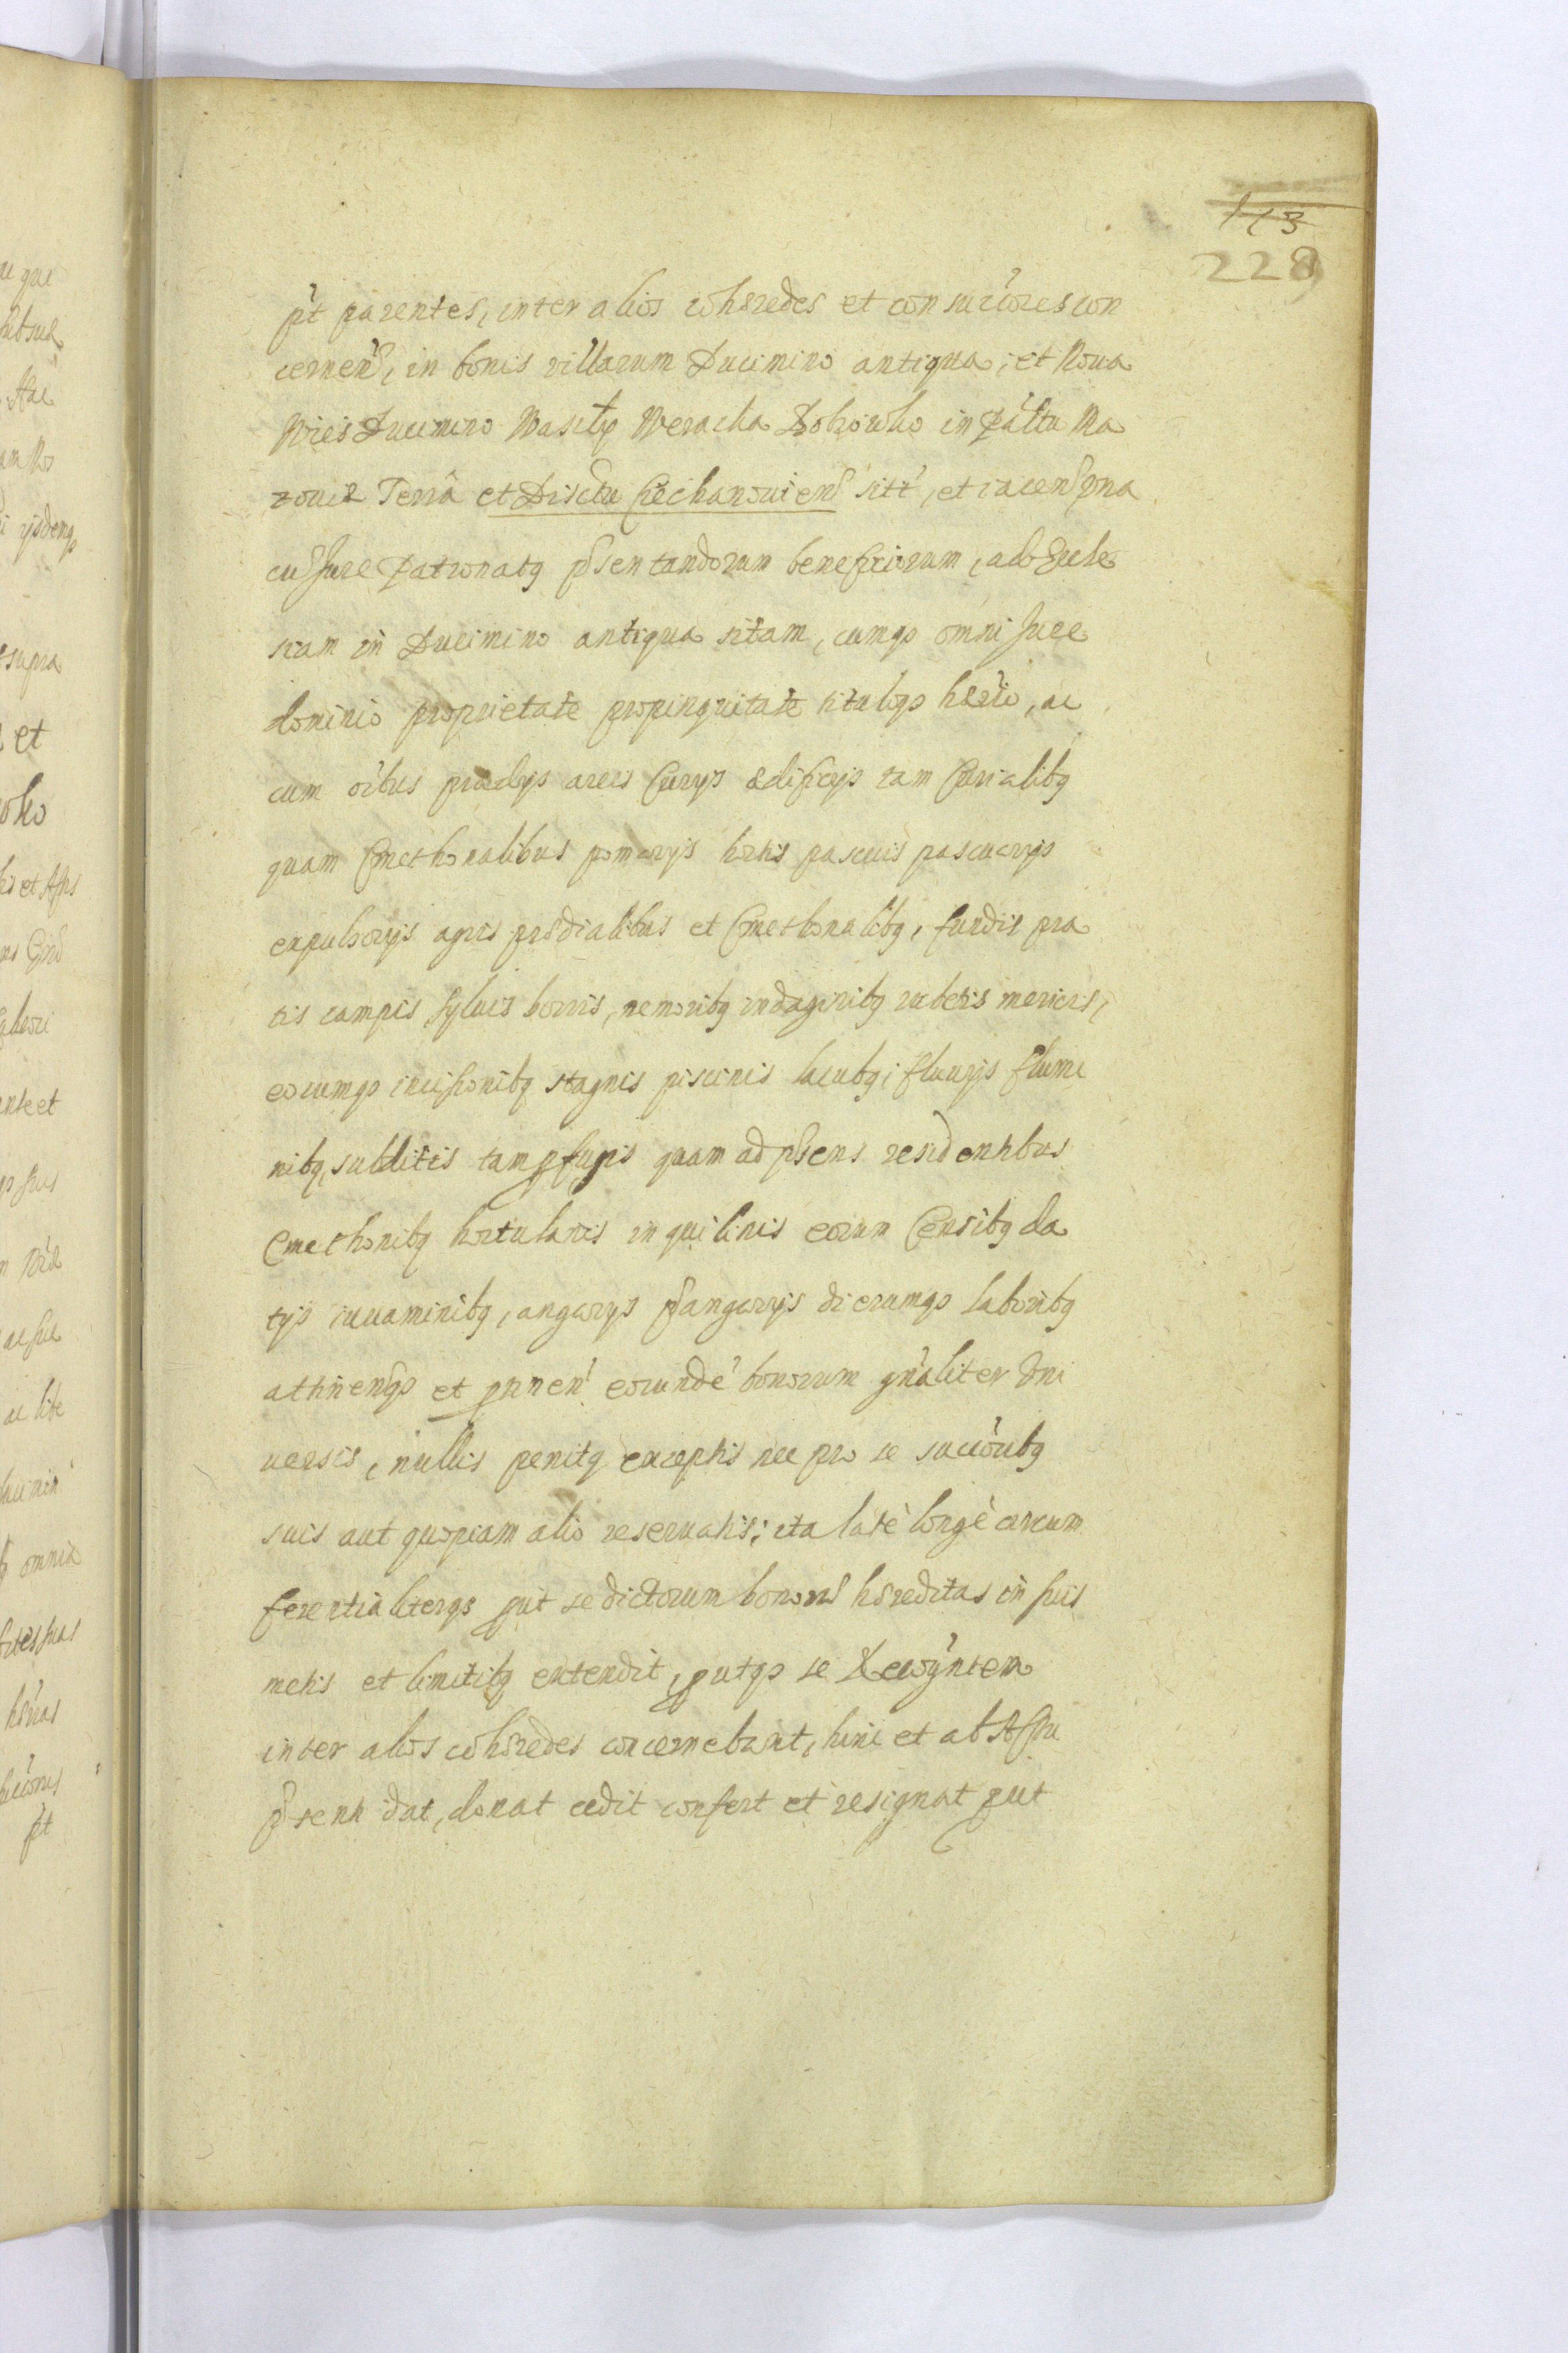 113
229
pt parentes, inter alios cohæredes et consuccores con
cernen, in bonis villarum Ducimino antiqua, et Noua
Wies Ducimino Wasily Weracka Sokowko in Pałtu Ma
zouiæ Terrâ et Disctu Ciechanouien sitt, et iacen una
cu Jure Patronatq psentandorum beneficiorum, ad Eccle
siam in Ducimino antiqua sitam, cumqz omni Jure
dominio proprietate propinquitate tituloqz hærio, ac
cum oibus prædijs areis Curijs ædificijs tam Curialibq
quam Cmethonalibus pomarijs hortis pascuis pascuarijs
expulsorijs agris prædialibus et Cmethonalibq, fundis pra
tis campis syluis borris, nemoribq indaginibq rubetis mericis,
eorumqz incisionibq stagnis piscinis lacubq, fluuijs flumi
nibq, subditis tam pfugis quam ad psens residentibus
Cmethonibq hortulanis inquilinis eorum Censibq da
tijs iuuaminibq, angarijs pangarijs dierumqz laboribq
attinenqz et ptinen eorunde bonorum gnaliter Uni
uersis, nullis penitq exceptis nec pro se succoribq
suis aut quopiam alio reseruatis; ita latè longè circum
ferentialiterqz put se dictorum bonorum hæreditas in suis
metis et limitibq extendit, putqz se
inter alios cohæredes concernebant, hinc et ab
psenti dat, donat cedit confert et resignat put